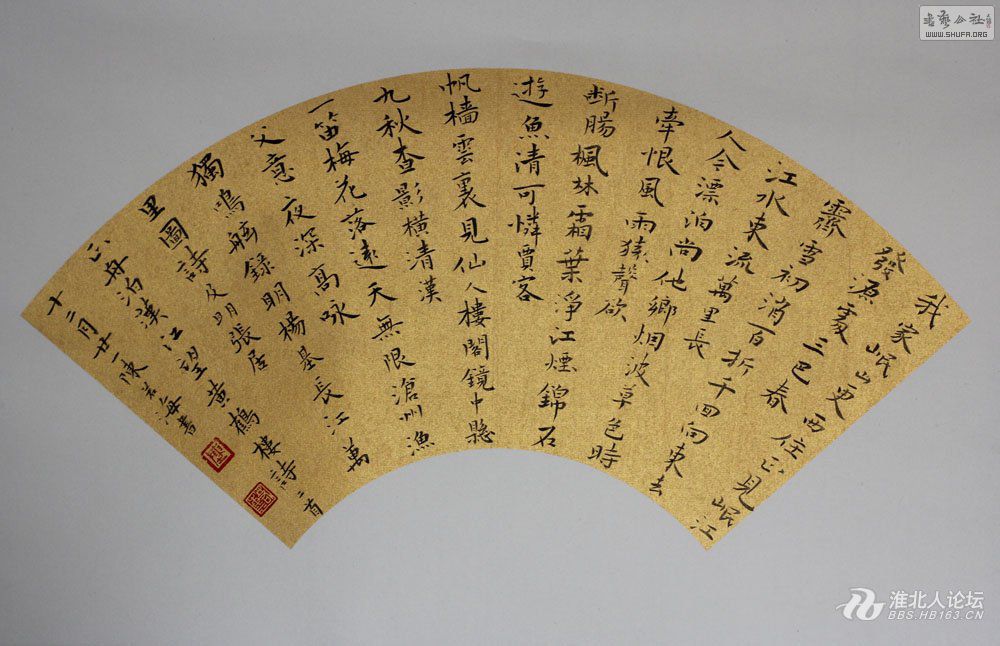 我家岷山更西住正見岷江
發源處三巴春
霽雪初消百折千回向東去
江水東流萬里長
人今漂泊尚他鄉烟波草色時
牽恨風雨猿聲欲
断腸楓林霜葉淨江煙錦石
遊魚清可憐賈客
帆檣雲裏見仙人樓閣鏡中懸
九秋查影橫清漢
一笛梅花落遠天無限滄州漁
父意夜深高咏
獨鳴舷録明楊基長江萬
里圖詩及明張居
正舟泊漢江望黃鶴樓詩二首
十二月廿一陳若海書
WWW.SHUFA.ORG
淮北人论坛
BBS.HB163.CN